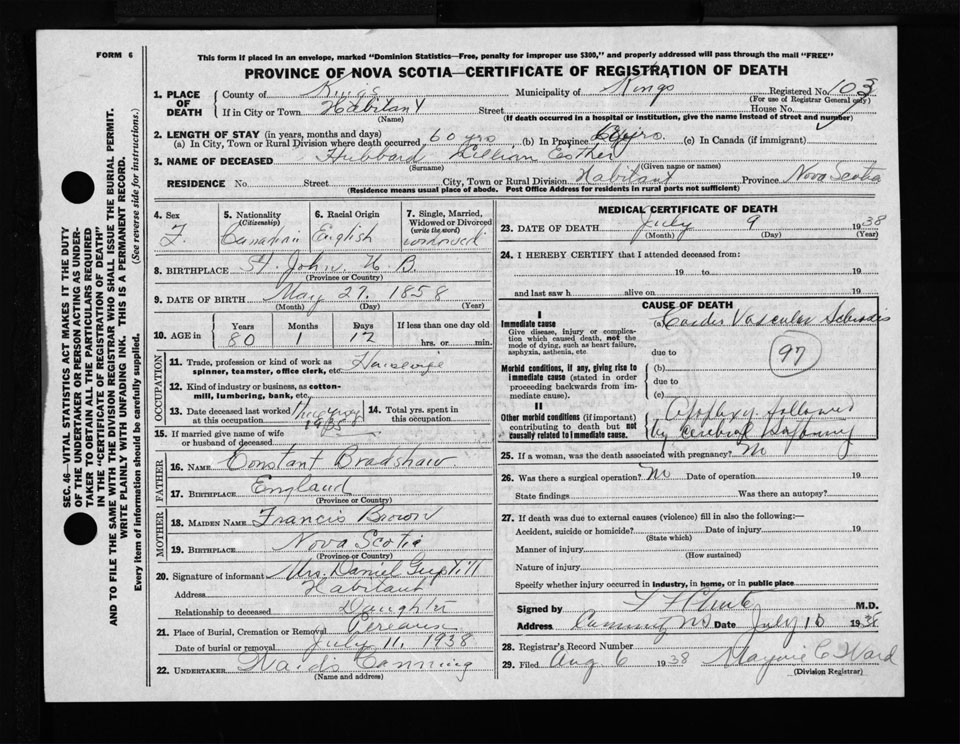 FORM 6
This form if placed in an envelope, marked "Dominion Statistics—Free, penalty for improper use $300," and properly addressed will pass through the mail "FREE"
PROVINCE OF NOVA SCOTIA—CERTIFICATE OF REGISTRATION OF DEATH
SEC. 46—VITAL STATISTICS ACT MAKES IT THE DUTY
OF THE UNDERTAKER OR PERSON ACTING AS UNDER-
TAKER TO OBTAIN ALL THE PARTICULARS REQUIRED
IN THE "CERTIFICATE OF REGISTRATION OF DEATH"
AND TO FILE THE SAME WITH THE DIVISION REGISTRAR WHO SHALL ISSUE THE BURIAL PERMIT.
WRITE PLAINLY WITH UNFADING INK. THIS IS A PERMANENT RECORD.
Every item of information should be carefully supplied. (See reverse side for instructions.)
1. PLACE OF DEATH County of Kings Municipality of Kings Registered No. 103
(For use of Registrar General only)
If in City or Town Habitant Street House No.
(Name) (If death occurred in a hospital or institution, give the name instead of street and number)
2. LENGTH OF STAY (in years, months and days)
(a) In City, Town or Rural Division where death occurred 60 yrs (b) In Province yrs. (c) In Canada (if immigrant)
3. NAME OF DECEASED Hubbard Lillian Esther
(Surname) (Given name or names)
RESIDENCE No. Street City, Town or Rural Division Habitant Province Nova Scotia
(Residence means usual place of abode. Post Office Address for residents in rural parts not sufficient)
4. Sex 5. Nationality 6. Racial Origin 7. Single, Married,
(Citizenship) Widowed or Divorced
(write the word)
F. Canadian English widowed
8. BIRTHPLACE St. John N B.
(Province or Country)
9. DATE OF BIRTH May 27, 1858
(Month) (Day) (Year)
10. AGE in Years Months Days If less than one day old
80 1 12 hrs. or min.
OCCUPATION
11. Trade, profession or kind of work as
spinner, teamster, office clerk, etc. Housewife
12. Kind of industry or business, as cotton-
mill, lumbering, bank, etc.
13. Date deceased last worked
at this occupation
14. Total yrs. spent in
this occupation
15. If married give name of wife
or husband of deceased
FATHER
16. NAME Constant Bradshaw
17. BIRTHPLACE England
(Province or Country)
MOTHER
18. MAIDEN NAME Francis Brown
19. BIRTHPLACE Nova Scotia
(Province or Country)
20. Signature of informant Mrs. Daniel Guptill
Address Habitant
Relationship to deceased Daughter
21. Place of Burial, Cremation or Removal Pereaux
Date of burial or removal July 11, 1938
22. UNDERTAKER Canning
(Name and address)
MEDICAL CERTIFICATE OF DEATH
23. DATE OF DEATH July 9 1938
(Month) (Day) (Year)
24. I HEREBY CERTIFY that I attended deceased from:
19 to 19
and last saw h alive on 19
CAUSE OF DEATH
I
Immediate cause (a) Cardio Vascular Sclerosis
Give disease, injury or complica-
tion which caused death, not the
mode of dying, such as heart failure,
asphyxia, asthenia, etc.
due to
97
Morbid conditions, if any, giving rise to
immediate cause (stated in order
proceeding backwards from im-
mediate cause).
(b)
due to
(c)
II
Other morbid conditions (if important)
contributing to death but not
causally related to immediate cause.
Apoplexy followed
by cerebral
25. If a woman, was the death associated with pregnancy? No
26. Was there a surgical operation? No Date of operation 19
State findings Was there an autopsy?
27. If death was due to external causes (violence) fill in also the following:—
Accident, suicide or homicide? Date of injury 19
(State which)
Manner of injury
(How sustained)
Nature of injury
Specify whether injury occurred in industry, in home, or in public place
Signed by M.D.
Address Canning NS Date July 10 1938
28. Registrar's Record Number
29. Filed Aug 6 1938 Marjorie C Ward
(Division Registrar)